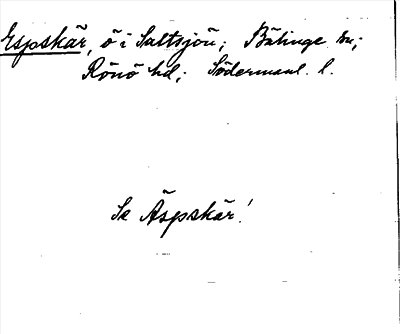 Espskär, ö i Saltsjön; Bälinge sn;
Rönö hd; Södermanl. l.
Se Äspskär!